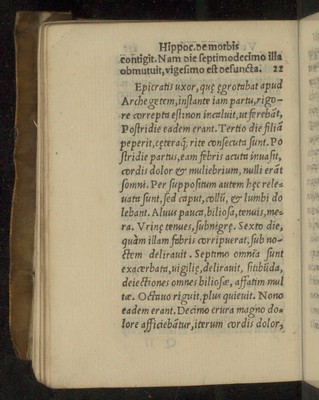 Hippoc. de morbis
contigit. Nam die septimodecimo illa
obmutuit, vigesimo est defuncta. 22
Epicratis uxor, quę ęgrotabat apud
Archegetem, instante iam partu, rigo-
re correpta est: non incaluit, ut ferebāt,
Postridie eadem erant. Tertio die filiā
peperit, cęteraq́; rite consecuta sunt. Po
stridie partus, eam febris acuta invasit,
cordis dolor & muliebrium, nulli erāt
somni. Per suppositum autem hęc rele-
vata sunt, sed caput, collū, & lumbi do
lebant. Alvus pauca, biliosa, tenuis, me-
ra. Vrinę tenues, subnigrę. Sexto die,
quàm illam febris corripuerat, sub no-
ctem deliravit. Septimo omnia sunt
exacerbata, vigilię, deliravit, sitibūda,
deiectiones omnes biliosæ, affatim mul
tæ. Octavo riguit, plus quievit. Nono
eadem erant. Decimo crura magno do-
lore afficiebātur, iterum cordis dolor,